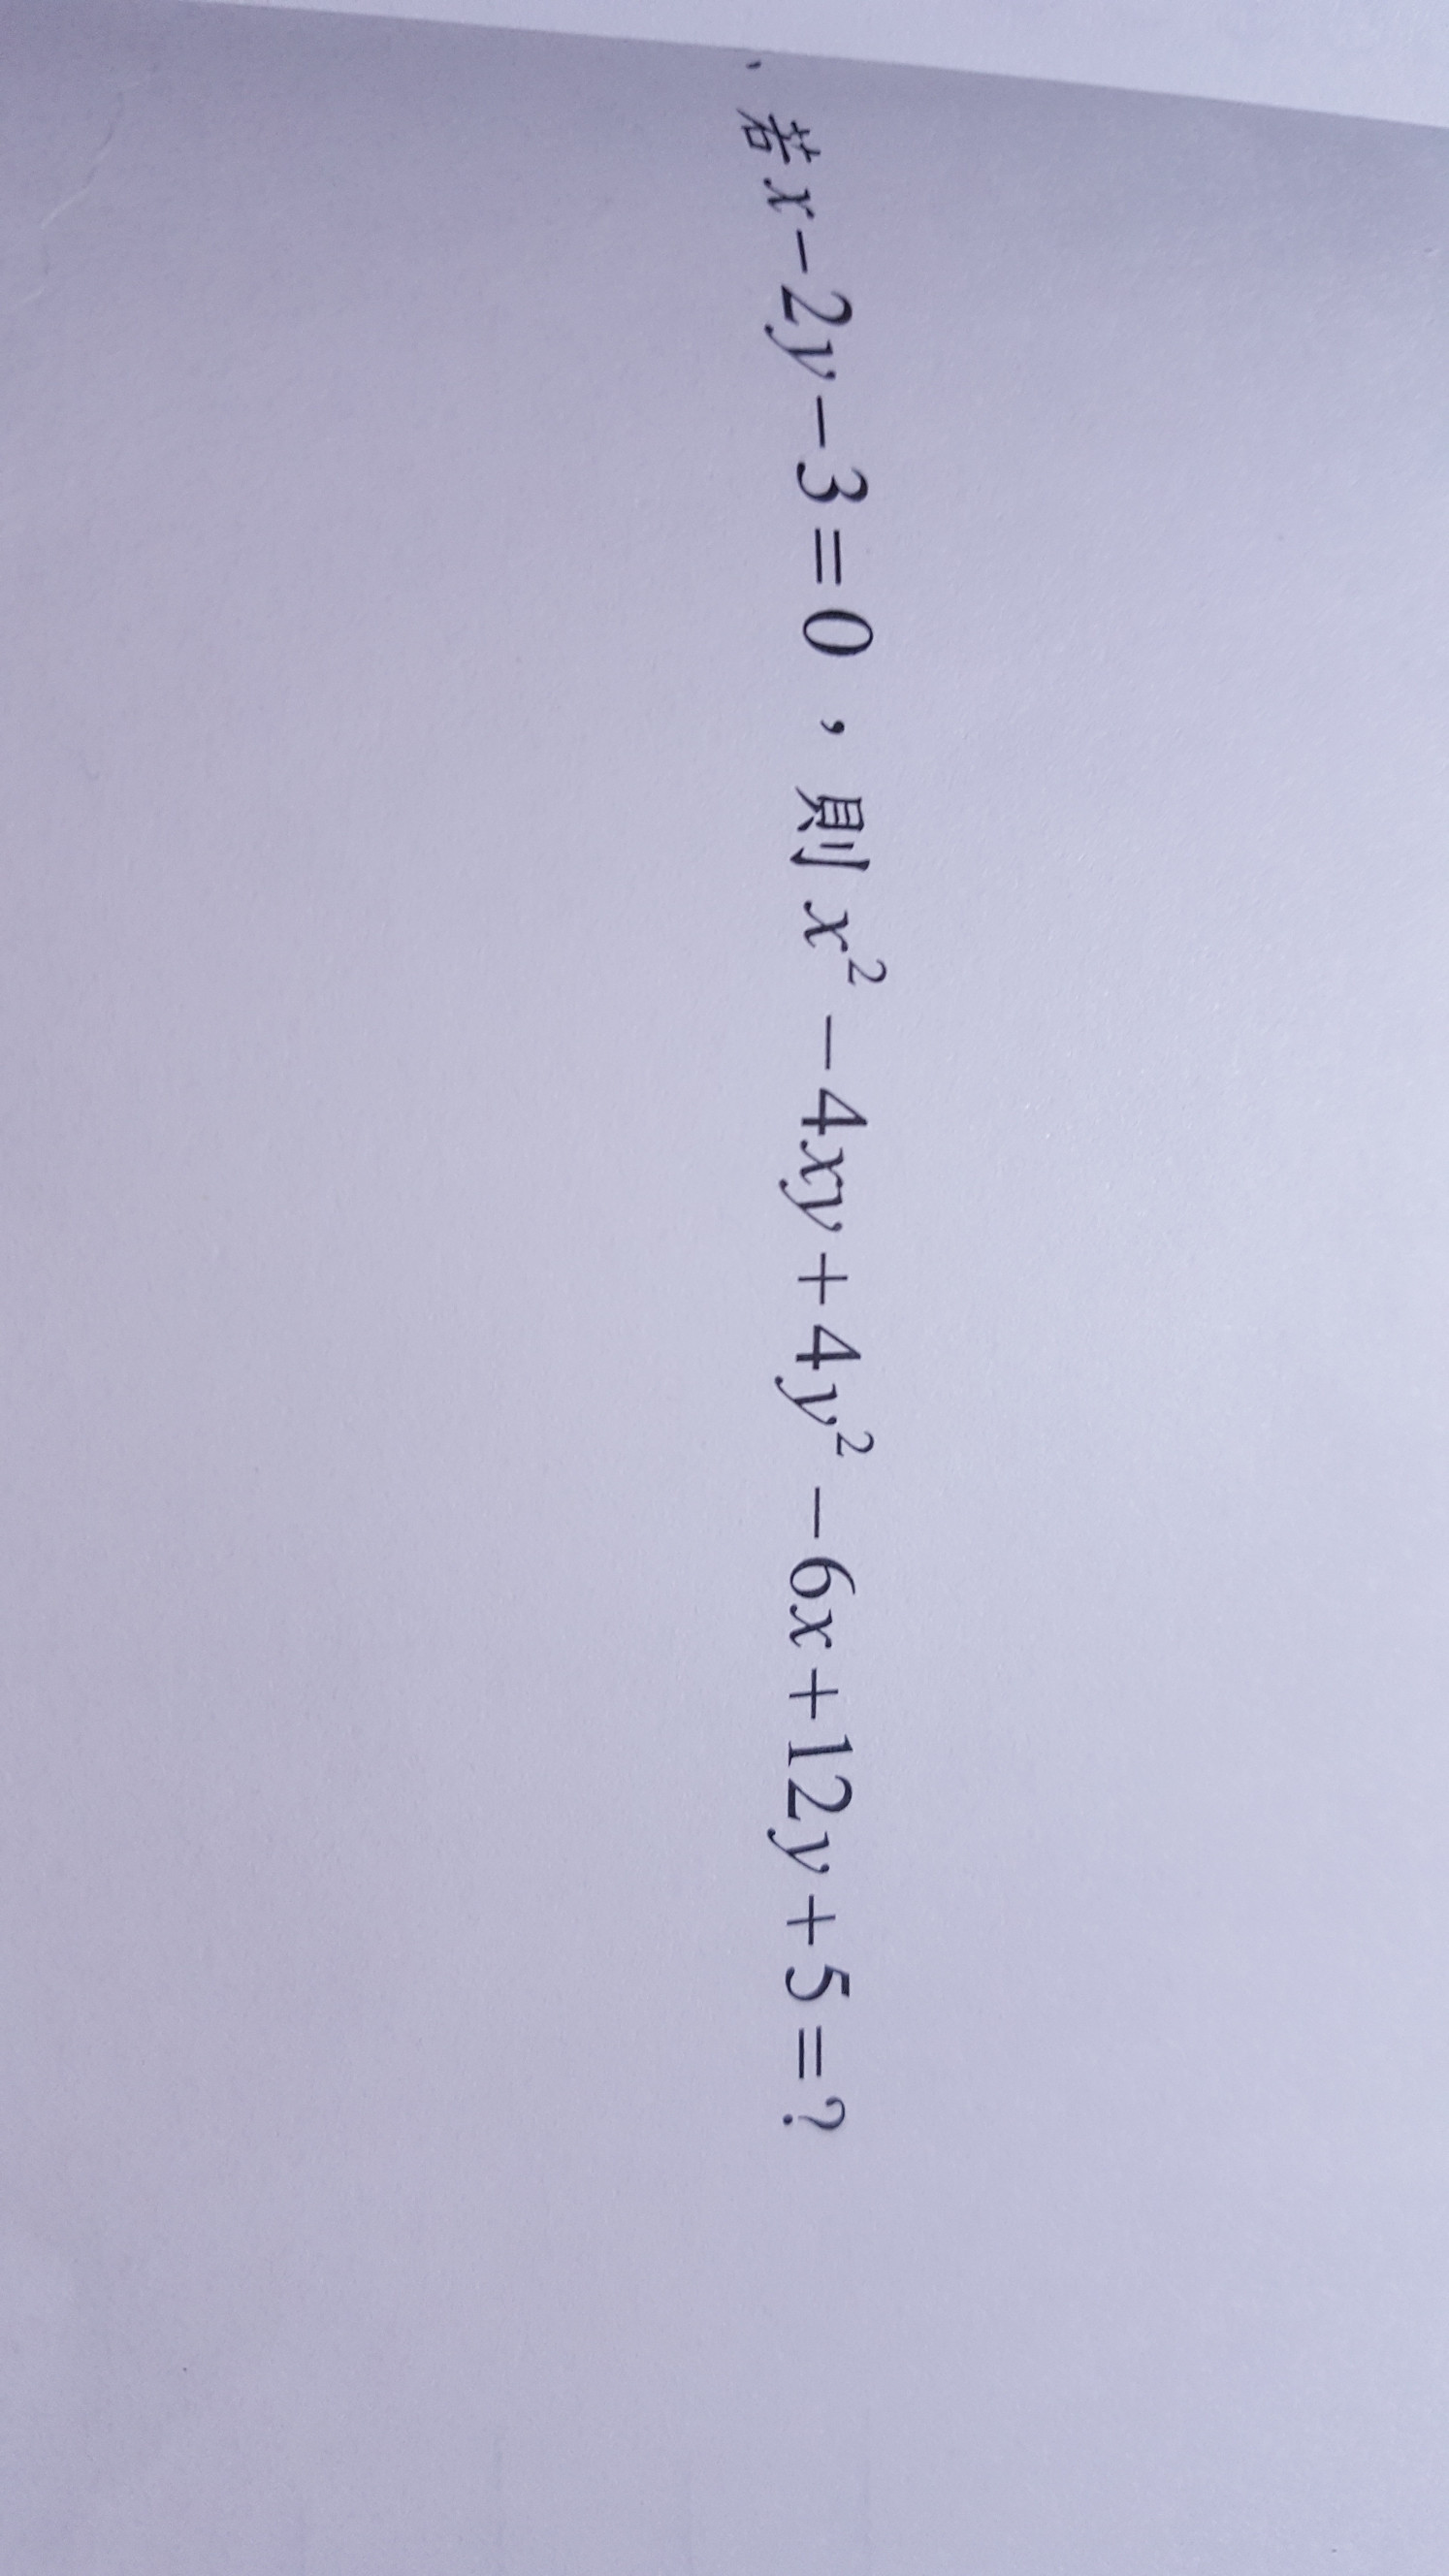 、若 x－2y－3＝0，則 x²－4xy＋4y²－6x＋12y＋5＝？